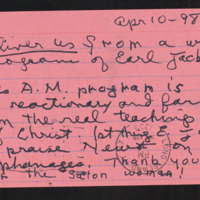 Apr 10-98
liver us from a w
ogram of Earl Jack
s A.M. program is
reactionary and far
m the real teaching
f Christ. 1st thing E J
praise Newt on
phanages. Thank you
the Salon woman!